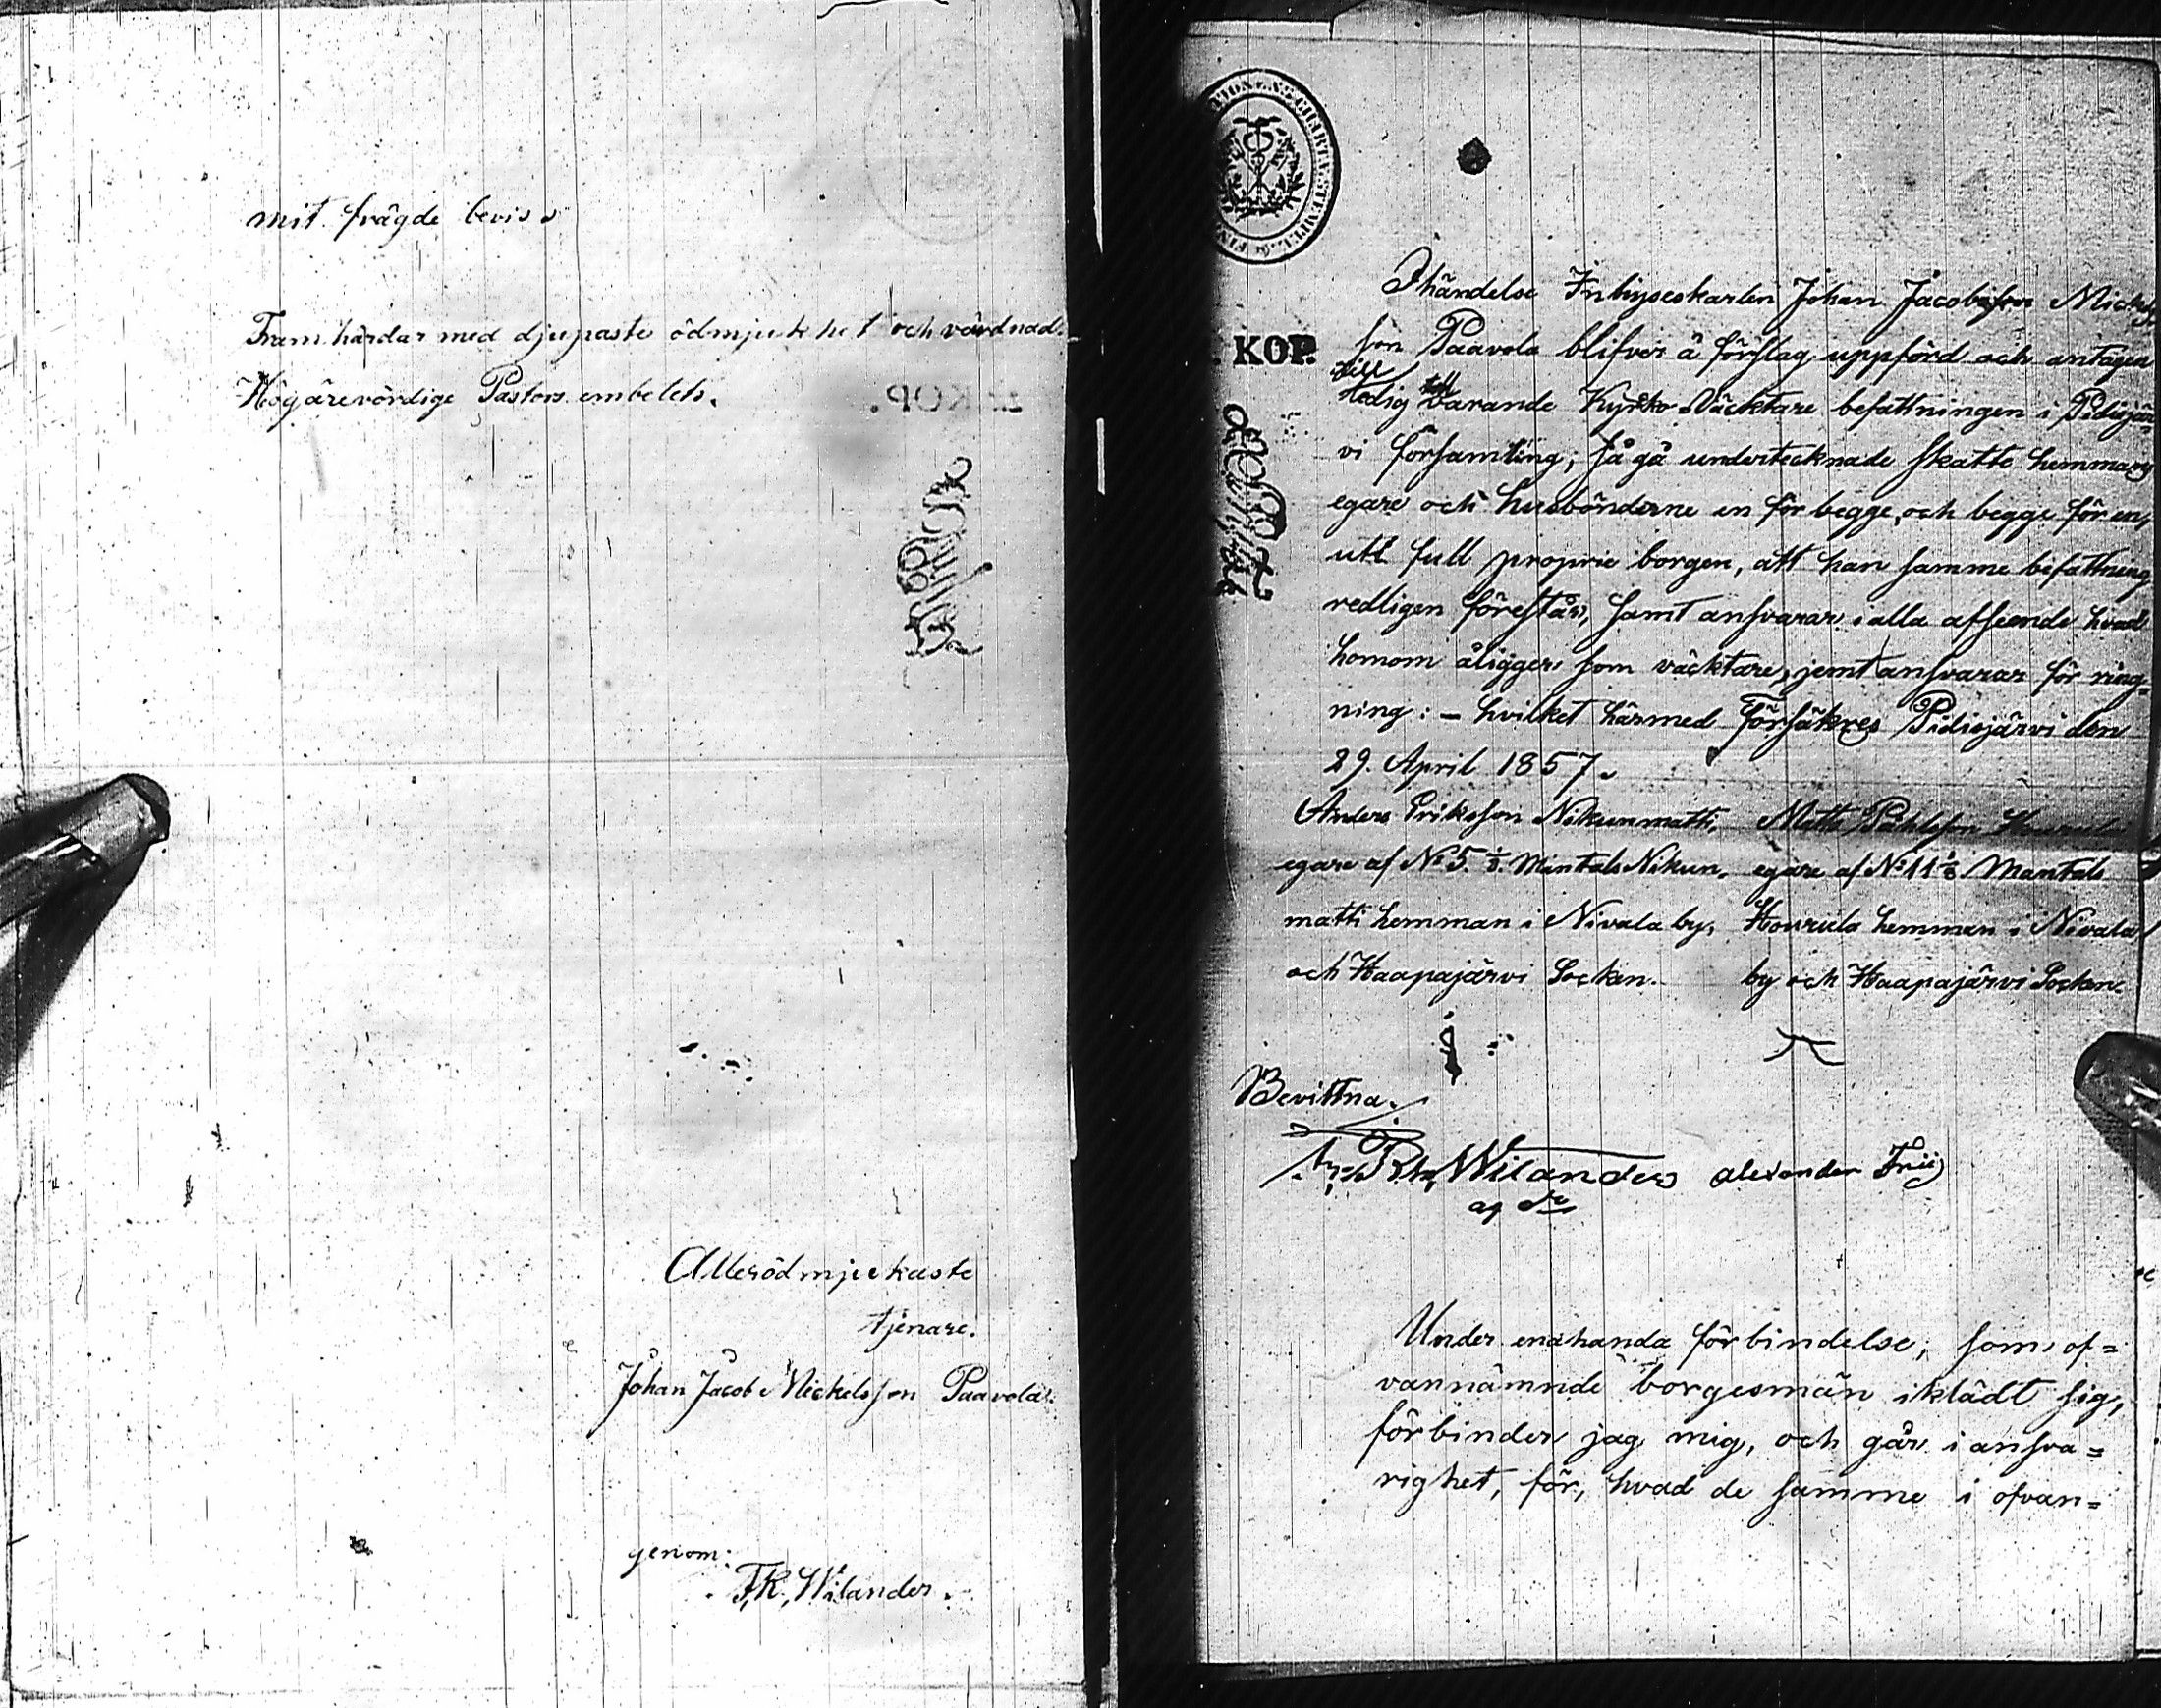 mit frägde bevis
Framhärdar med djupaste ödmjukhet och vördnad.
Högärevördige Pastors embetets.
Allerödmjukaste
tjenare.
Johan Jacob Mickelsson Paavola.
genom:
F,R, Wilander.
KOP.
I händelse Inhyseskarlen Johan Jacobsson Mickels
son Paavola blifver å förslag uppförd och antagen
till
ledig varande Kyrko Väcktare befattningen i Pidisjär=
vi församling; så gå undertecknade skatte hemmans
egare och husbönderne en för begge, och begge för en,
utt full proprie borgen, att han samme befattning
redligen förestår, samt ansvarar i alla afseende hvad
honom åligger som väcktare, jemt ansvarar för ring=
ning: - hvilket härmed försäkres Pidisjärvi den
29. April 1857.
Anders Eriksson Nikunmatti, Matts Påhlsson
egare af No 5. 1/8. Mantals Nikun, egare af No 11 1/8 Mantals
matti hemman i Nivala by, Hourula hemman i Nivala
och Haapajärvi Socken. by och Haapajärvi Socken.
Bevittna.
Wilander Alexander Friis
Under enahanda förbindelse, som of=
vannämnde borgesmän iklädt sig,
förbinder jag mig, och går i ansva=
righet, för, hvad de samme i ofvan=